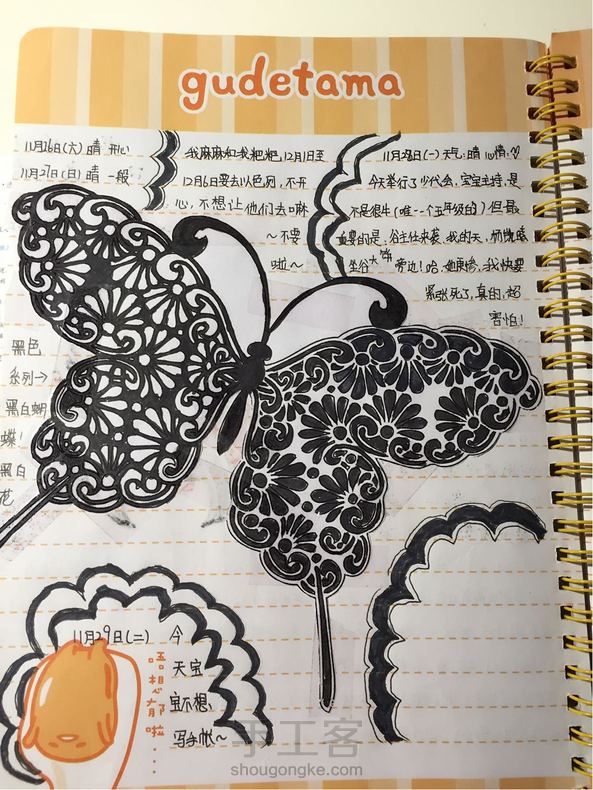 gudetama
11月26日(六) 晴 开心
11月27日(日) 晴 一般
我麻麻和我粑粑,12月1日至
12月6日要去以色列,不开
心,不想让他们去嘛
~不要
啦~
11月28日(一) 天气:晴 心情:♡
今天举行了少代会,宝宝主持,是
不是很牛(唯一个五年级的)但最
重要的是,谷主任来袭,我的天,
坐谷大
旁边!哈,她更惨,我快要
紧张死了,真的,超
害怕!
黑色
系列→
黑白蝴
蝶!
黑白
花
11月29日(二) 今
天宝
宝不想
写手帐~
唔想郁啦....
手工客
shougongke.com